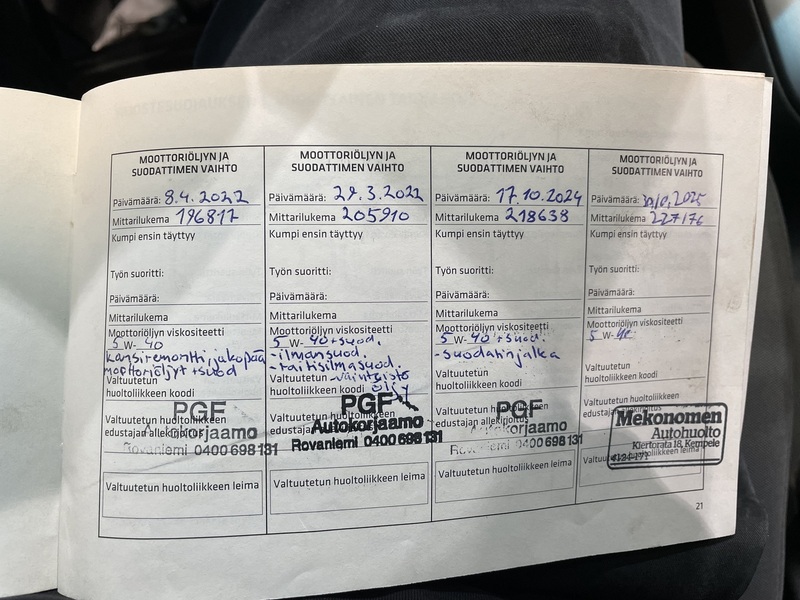 MOOTTORIÖLJYN JA
SUODATTIMEN VAIHTO
Päivämäärä: 8.4.2022
Mittarilukema 196817
Kumpi ensin täyttyy
Työn suoritti:
Päivämäärä:
Mittarilukema
Moottoriöljyn viskositeetti
5 W- 40
kansiremontti, jakopää
moottoriöljyt + suod
Valtuutetun
huoltoliikkeen koodi
Valtuutetun huoltoliikkeen
edustajan allekirjoitus
PGF
Autokorjaamo
Rovaniemi 0400 698 131
Valtuutetun huoltoliikkeen leima
MOOTTORIÖLJYN JA
SUODATTIMEN VAIHTO
Päivämäärä: 29.3.2022
Mittarilukema 205910
Kumpi ensin täyttyy
Työn suoritti:
Päivämäärä:
Mittarilukema
Moottoriöljyn viskositeetti
5 W- 40 + suod.
- ilmansuod.
- raitisilmasuod.
Valtuutetun - vaihteisto
huoltoliikkeen koodi öljy
Valtuutetun huoltoliikkeen
edustajan allekirjoitus
PGF
Autokorjaamo
Rovaniemi 0400 698 131
Valtuutetun huoltoliikkeen leima
MOOTTORIÖLJYN JA
SUODATTIMEN VAIHTO
Päivämäärä: 17.10.2024
Mittarilukema 218638
Kumpi ensin täyttyy
Työn suoritti:
Päivämäärä:
Mittarilukema
Moottoriöljyn viskositeetti
5 W- 40 + suod.
- suodatinjalka
Valtuutetun
huoltoliikkeen koodi
Valtuutetun huoltoliikkeen
edustajan allekirjoitus
PGF
Autokorjaamo
Rovaniemi 0400 698 131
Valtuutetun huoltoliikkeen leima
MOOTTORIÖLJYN JA
SUODATTIMEN VAIHTO
Päivämäärä:
Mittarilukema 227176
Kumpi ensin täyttyy
Työn suoritti:
Päivämäärä:
Mittarilukema
Moottoriöljyn viskositeetti
5 W- 40
Valtuutetun
huoltoliikkeen koodi
Valtuutetun huoltoliikkeen
edustajan allekirjoitus
Mekonomen
Autohuolto
Kiertorata 18, Kempele
Valtuutetun huoltoliikkeen leima
21